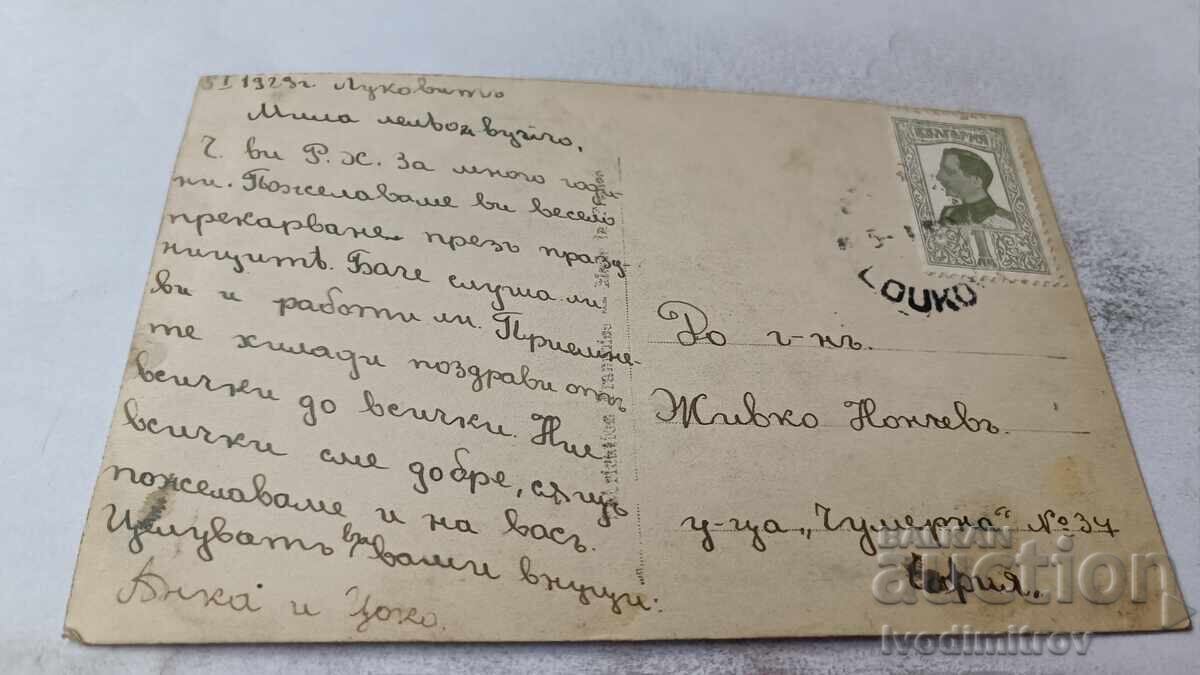 5 I 1929г. Луковитъ
Мила лельо и вуйчо,
Ч. ви Р. Х. За много годи-
ни. Пожелаваме ви весело
прекарване презъ празд-
ницитѣ. Баче слуша ли
ви и работи ли. Приемне-
те хиляди поздрави отъ
всички до всички. Ние
всички сме добре, сѫщо
пожелаваме и на васъ.
Целуватъ ви вашти внуци:
Анка и Цоко.
БЪЛГАРИЯ
1
LOUKO
До г-нъ.
Живко Нончевъ.
у-ца „Чумерна" № 34
София.
BALKAN
auction
ivodimitrov